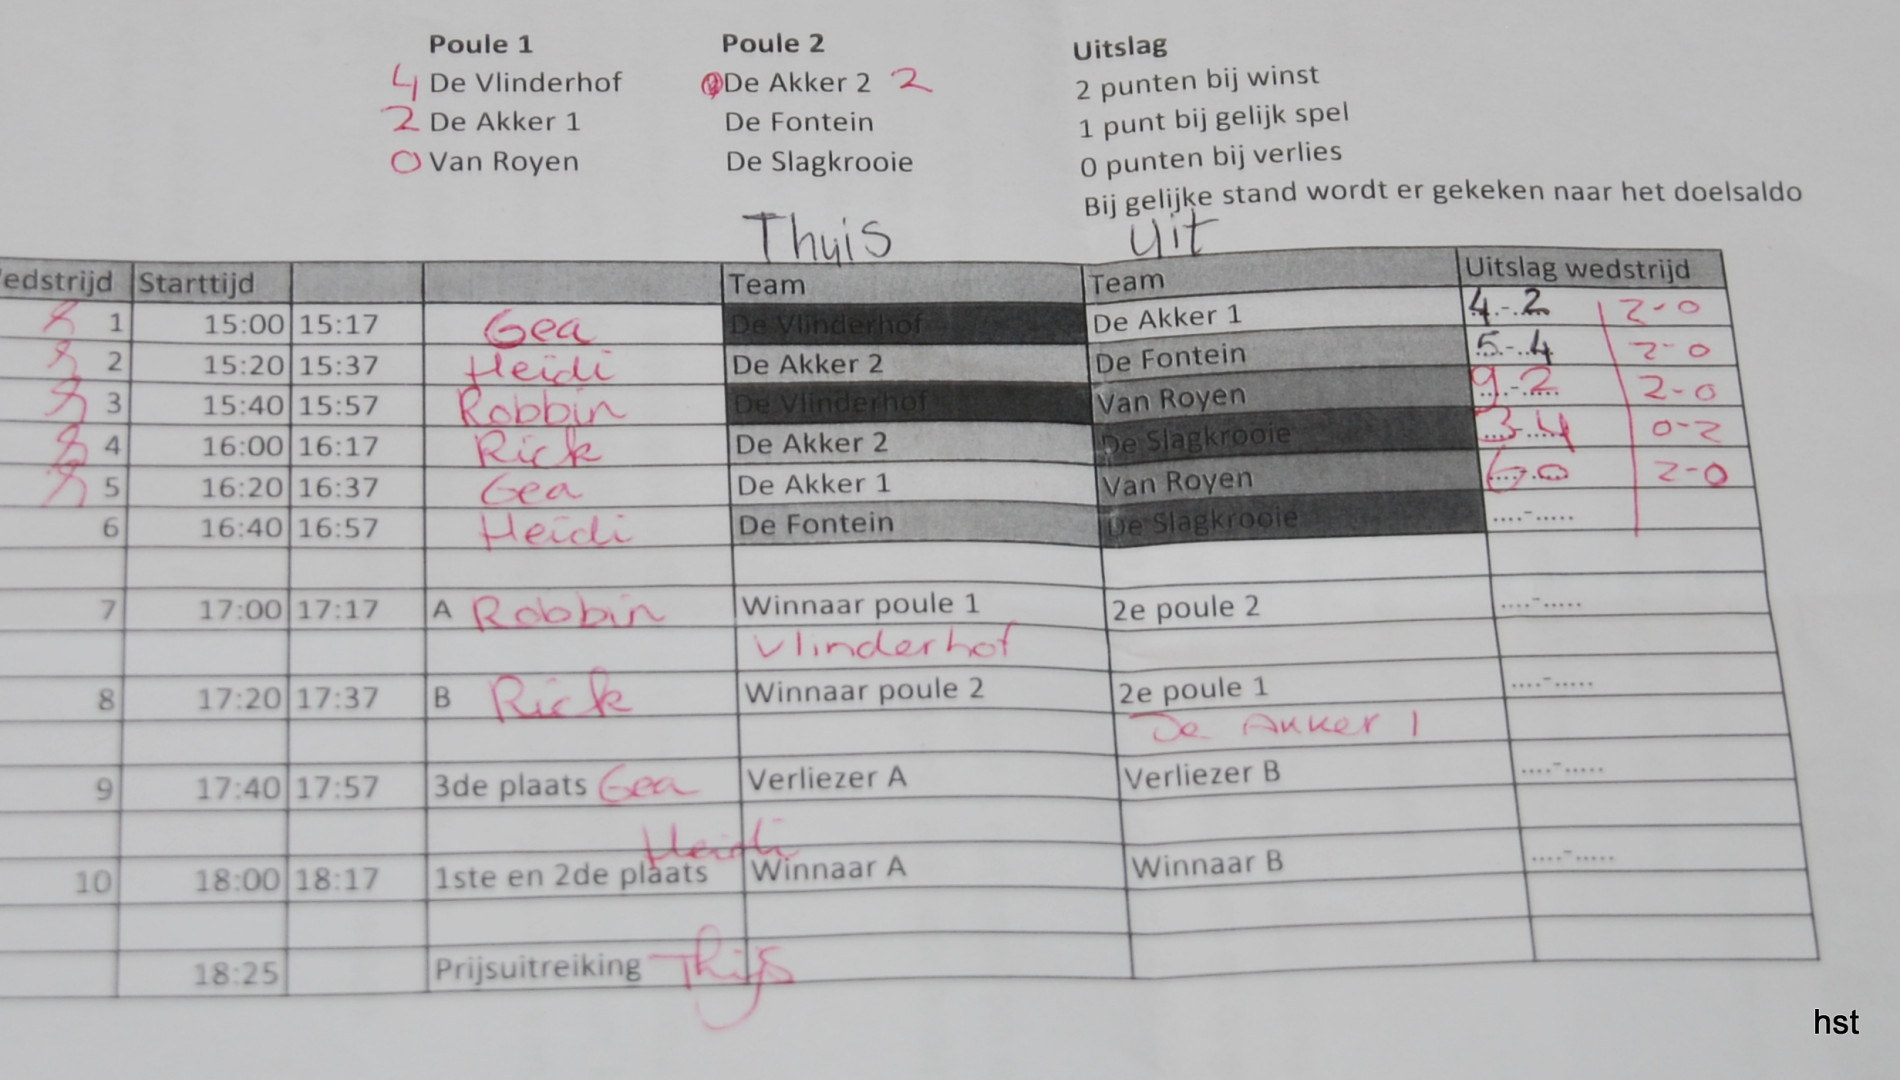 Poule 1 Poule 2 Uitslag
4 De Vlinderhof De Akker 2 2 2 punten bij winst
2 De Akker 1 De Fontein 1 punt bij gelijk spel
0 Van Royen De Slagkrooie 0 punten bij verlies
Bij gelijke stand wordt er gekeken naar het doelsaldo
Thuis Uit
edstrijd Starttijd Team Team Uitslag wedstrijd
1 15:00 15:17 Gea De Vlinderhof De Akker 1 4-2 2-0
2 15:20 15:37 Heidi De Akker 2 De Fontein 5-4 2-0
3 15:40 15:57 Robbin De Vlinderhof Van Royen 9-2 2-0
4 16:00 16:17 Rick De Akker 2 De Slagkrooie 3-4 0-2
5 16:20 16:37 Gea De Akker 1 Van Royen 6-0 2-0
6 16:40 16:57 Heidi De Fontein De Slagkrooie ....-.....
7 17:00 17:17 A Robbin Winnaar poule 1 2e poule 2 ....-.....
Vlinderhof
8 17:20 17:37 B Rick Winnaar poule 2 2e poule 1 ....-.....
De Akker 1
9 17:40 17:57 3de plaats Gea Verliezer A Verliezer B ....-.....
Heidi
10 18:00 18:17 1ste en 2de plaats Winnaar A Winnaar B ....-.....
18:25 Prijsuitreiking Thijs
hst